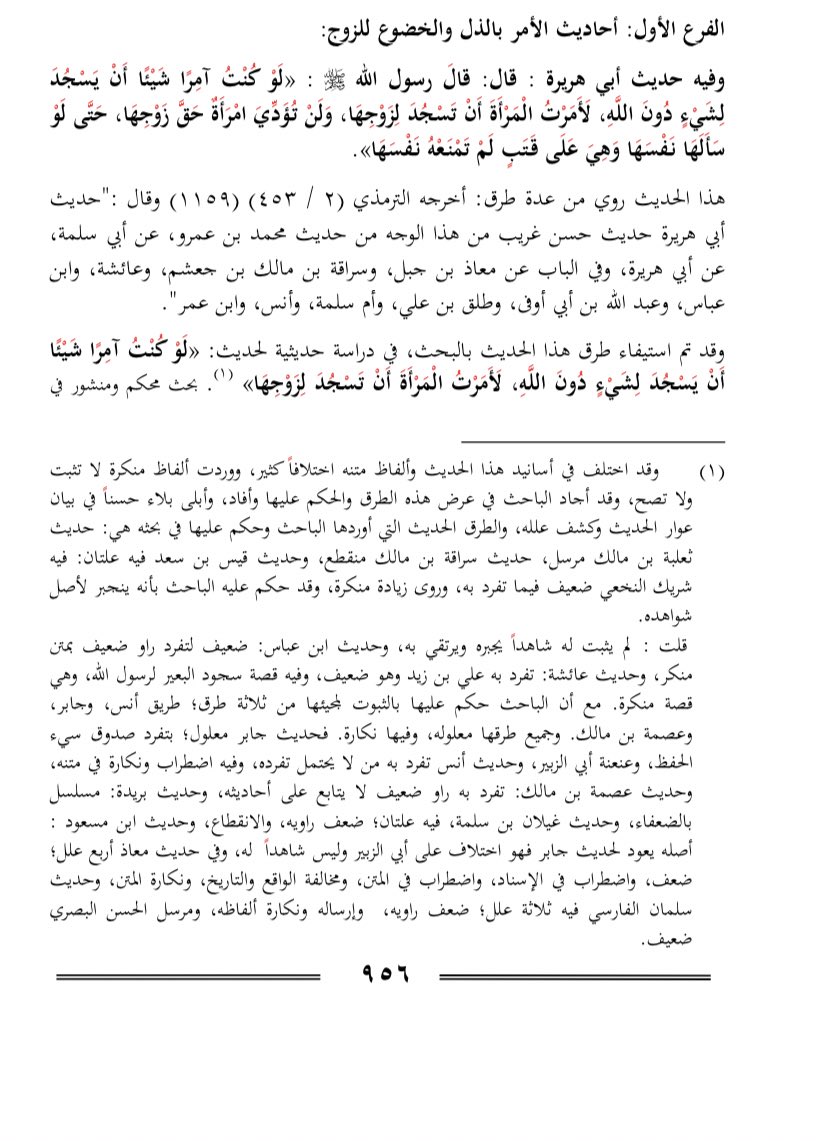 الفرع الأول: أحاديث الأمر بالذل والخضوع للزوج:
وفيه حديث أبي هريرة : قال: قالَ رسول الله ﷺ : «لَوْ كُنْتُ آمِرًا شَيْئًا أَنْ يَسْجُدَ
لِشَيْءٍ دُونَ اللَّهِ، لَأَمَرْتُ الْمَرْأَةَ أَنْ تَسْجُدَ لِزَوْجِهَا، وَلَنْ تُؤَدِّيَ امْرَأَةٌ حَقَّ زَوْجِهَا، حَتَّى لَوْ
سَأَلَهَا نَفْسَهَا وَهِيَ عَلَى قَتَبٍ لَمْ تَمْنَعْهُ نَفْسَهَا».
هذا الحديث روي من عدة طرق: أخرجه الترمذي (٢ / ٤٥٣) (١١٥٩) وقال :"حديث
أبي هريرة حديث حسن غريب من هذا الوجه من حديث محمد بن عمرو، عن أبي سلمة،
عن أبي هريرة، وفي الباب عن معاذ بن جبل، وسراقة بن مالك بن جعشم، وعائشة، وابن
عباس، وعبد الله بن أبي أوفى، وطلق بن علي، وأم سلمة، وأنس، وابن عمر".
وقد تم استيفاء طرق هذا الحديث بالبحث، في دراسة حديثية لحديث: «لَوْ كُنْتُ آمِرًا شَيْئًا
أَنْ يَسْجُدَ لِشَيْءٍ دُونَ اللَّهِ، لَأَمَرْتُ الْمَرْأَةَ أَنْ تَسْجُدَ لِزَوْجِهَا» (١). بحث محكم ومنشور في
(١) وقد اختلف في أسانيد هذا الحديث وألفاظ متنه اختلافاً كثير، ووردت ألفاظ منكرة لا تثبت
ولا تصح، وقد أجاد الباحث في عرض هذه الطرق والحكم عليها وأفاد، وأبلى بلاء حسناً في بيان
عوار الحديث وكشف علله، والطرق الحديث التي أوردها الباحث وحكم عليها في بحثه هي: حديث
ثعلبة بن مالك مرسل، حديث سراقة بن مالك منقطع، وحديث قيس بن سعد فيه علتان: فيه
شريك النخعي ضعيف فيما تفرد به، وروى زيادة منكرة، وقد حكم عليه الباحث بأنه ينجبر لأصل
شواهده.
قلت : لم يثبت له شاهداً يجبره ويرتقي به، وحديث ابن عباس: ضعيف لتفرد راو ضعيف بمتن
منكر، وحديث عائشة: تفرد به علي بن زيد وهو ضعيف، وفيه قصة سجود البعير لرسول الله، وهي
قصة منكرة. مع أن الباحث حكم عليها بالثبوت لمجيئها من ثلاثة طرق؛ طريق أنس، وجابر،
وعصمة بن مالك. وجميع طرقها معلوله، وفيها نكارة. فحديث جابر معلول؛ بتفرد صدوق سيء
الحفظ، وعنعنة أبي الزبير، وحديث أنس تفرد به من لا يحتمل تفرده، وفيه اضطراب ونكارة في متنه،
وحديث عصمة بن مالك: تفرد به راو ضعيف لا يتابع على أحاديثه، وحديث بريدة: مسلسل
بالضعفاء، وحديث غيلان بن سلمة، فيه علتان؛ ضعف راويه، والانقطاع، وحديث ابن مسعود :
أصله يعود لحديث جابر فهو اختلاف على أبي الزبير وليس شاهداً له، وفي حديث معاذ أربع علل؛
ضعف، واضطراب في الإسناد، واضطراب في المتن، ومخالفة الواقع والتاريخ، ونكارة المتن، وحديث
سلمان الفارسي فيه ثلاثة علل؛ ضعف راويه، وإرساله ونكارة ألفاظه، ومرسل الحسن البصري
ضعيف.
٩٥٦